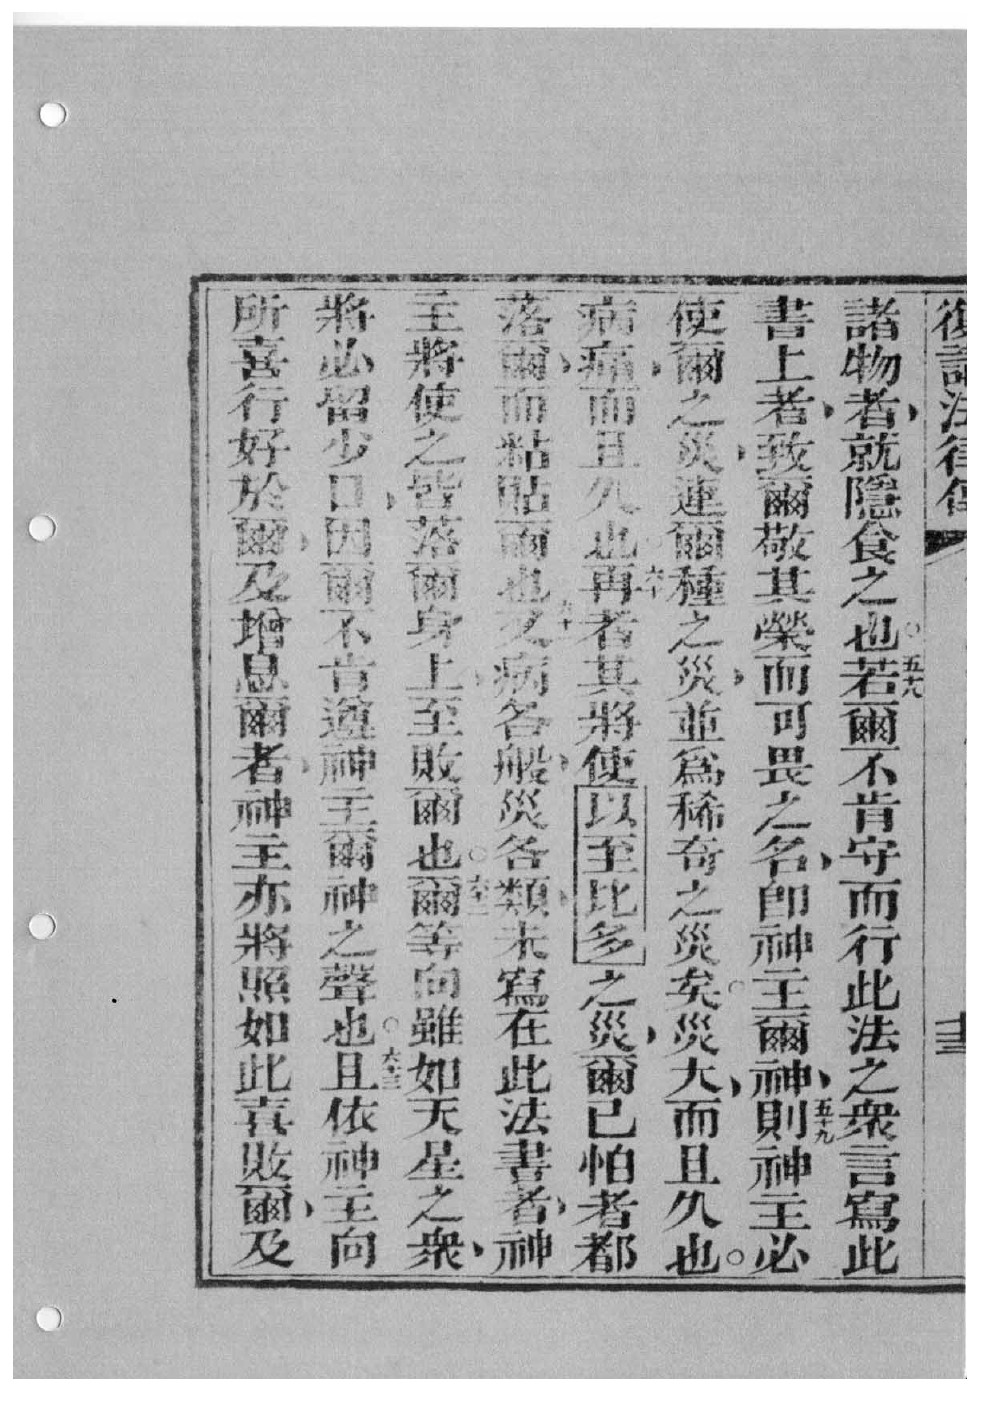 復講法律傳
諸物者就隱食之也。五十八若爾不肯守而行此法之衆言寫此
書上者致爾敬其榮而可畏之名卽神主爾神五十九則神主必
使爾之災連爾種之災並爲稀奇之災矣。災大而且久也。
病痛而且久也。六十再者其將使以至比多之災爾已怕者都
落爾而粘貼爾也。六十一又病各般災各類未寫在此法書者神
主將使之皆落爾身上至敗爾也。六十二爾等向雖如天星之衆
將必留少口因爾不肯遵神主爾神之聲也。六十三且依神主向
所喜行好於爾及增息爾者神主亦將照如此喜敗爾及